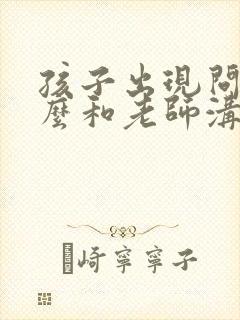 孩子出現問
麼和老師溝
崎寧寧子